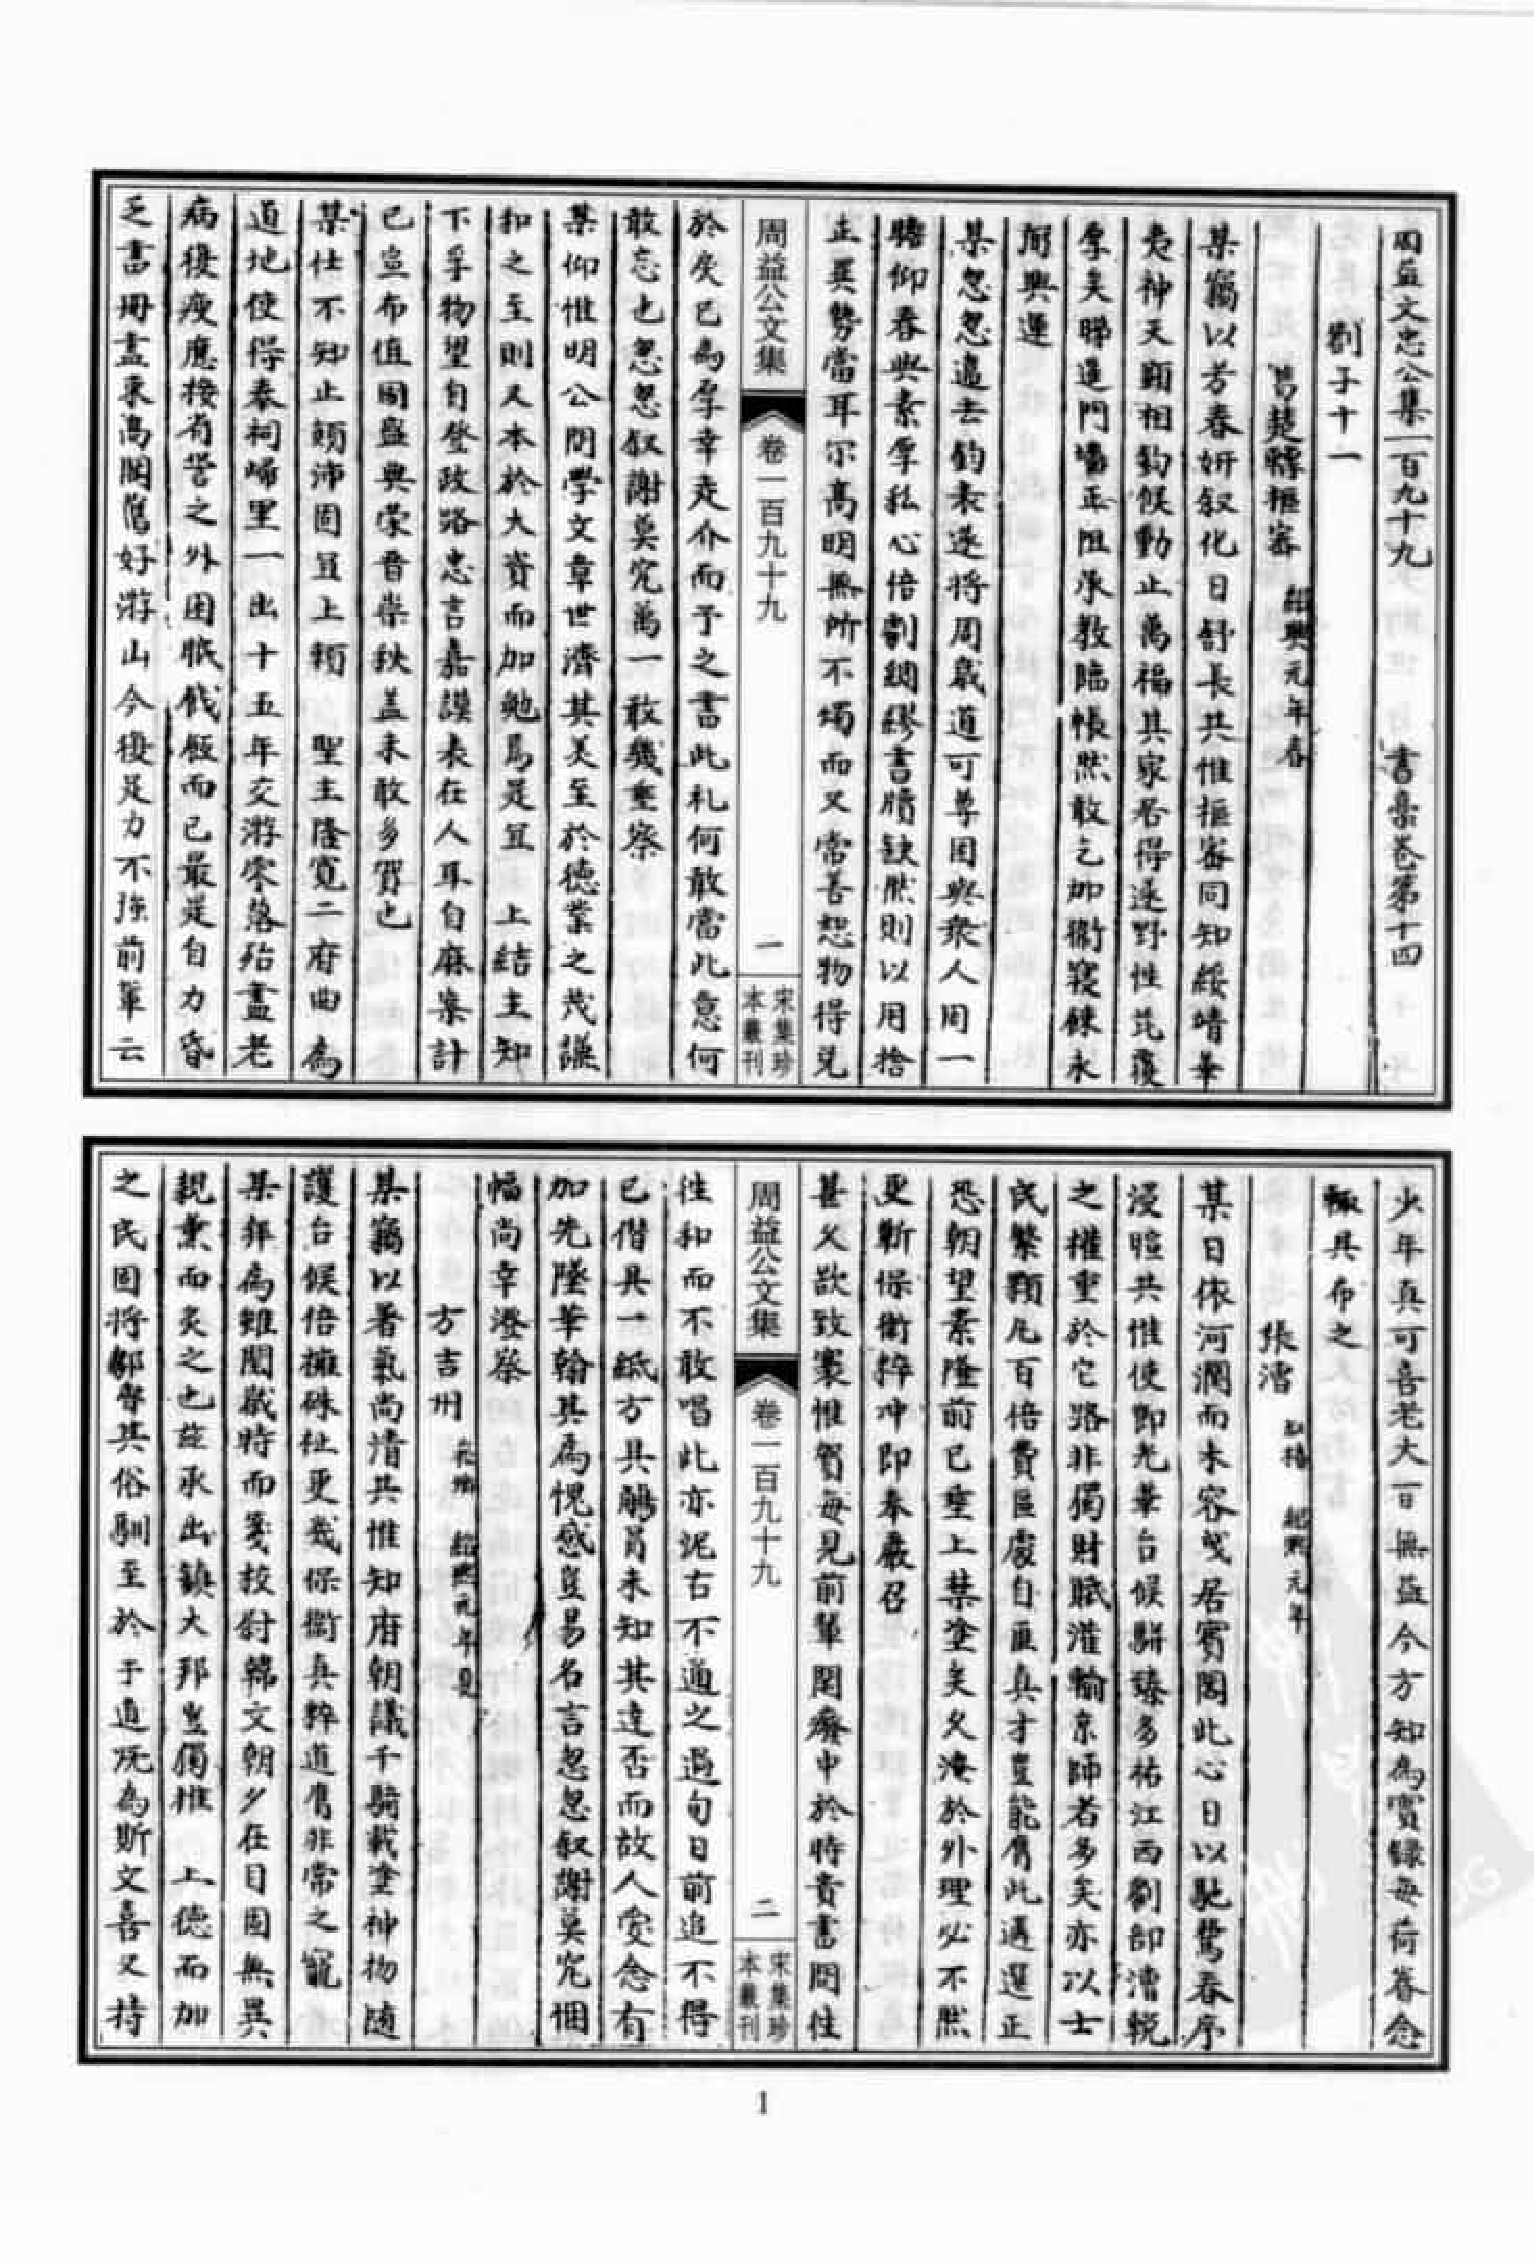 周益文忠公集一百九十九　書藁卷第十四
劄子十一
葛楚輔樞密　紹興元年春
某竊以芳春妍叙化日舒長共惟樞密同知綏靖華
夷神天顧相鈞候動止萬福某家居得遂野性芘覆
厚矣睇進門墻正阻承教臨帳然敢乞加衛寢餗永
弼興運
某忽忽違去鈞表遂將周歲道可尊固與衆人同一
瞻仰眷與素厚私心倍劇綢繆書牘缺然則以用捨
正異勢當耳尔高明無所不燭而又常善恕物得免
於戾已為厚幸走介而予之書此礼何敢當此意何
敢忘也忽忽叙謝莫究萬一敢幾垂察
某仰惟明公問學文章世濟其美至於德業之茂謙
和之至則又本於大資而加勉焉是宜　上結主知
下孚物望自登政路忠言嘉謨表在人耳自麻案計
已宣布值國盛典榮晋崇秩盖未敢多賀也
某仕不知止顛沛固宜上賴　聖主隆寬二府曲為
道地使得奉祠歸里一出十五年交游零落殆盡老
病後瘦應接有訾之外困眠飢飯而已最是自力昏
乏書冊盡束高閣舊好游山今復足力不強前軰云
周益公文集
卷一百九十九
一
宋集珍
本叢刊
少年真可喜老大百無益今方知為實録每荷眷念
輒具布之
張漕　紹熙元年
某日依河潤而未容曳居賓閣此心日以馳騖春序
浸暄共惟使節光華台候駢臻多祐江西劉部漕輓
之權重於它路非獨財賦灌輸京師者多矣亦以士
民繁顆凡百倍費區處自匪真才豈能膺此遇選正
恐朝望素隆前已垂上禁塗矣久淹於外理必不然
更靳保衛粹冲即奉嚴召
甚久欲致褁惟贺每見前軰閑癈中於時貴書問徃
徃和而不敢唱此亦泥古不通之過旬日前追不得
已僭具一紙方具鵬翼未知其達否而故人愛念有
加先墜華翰其為愧感豈易名言忽忽叙謝莫究悃
幅尚幸澄察
方吉州　紹熙元年夏
某竊以暑氣尚清共惟知府朝議千騎載塗神物随
護台候倍擁殊祉更幾保衛真粹道膺非常之寵
某拜為雖閲歲時而箋敎尉韓文朝夕在目固無異
親熏而炙之也茲承出鎮大邦豈獨推　上德而加
之民固將鄒魯其俗馴至於于道既為斯文喜又持
周益公文集
卷一百九十九
二
宋集珍
本叢刊
1